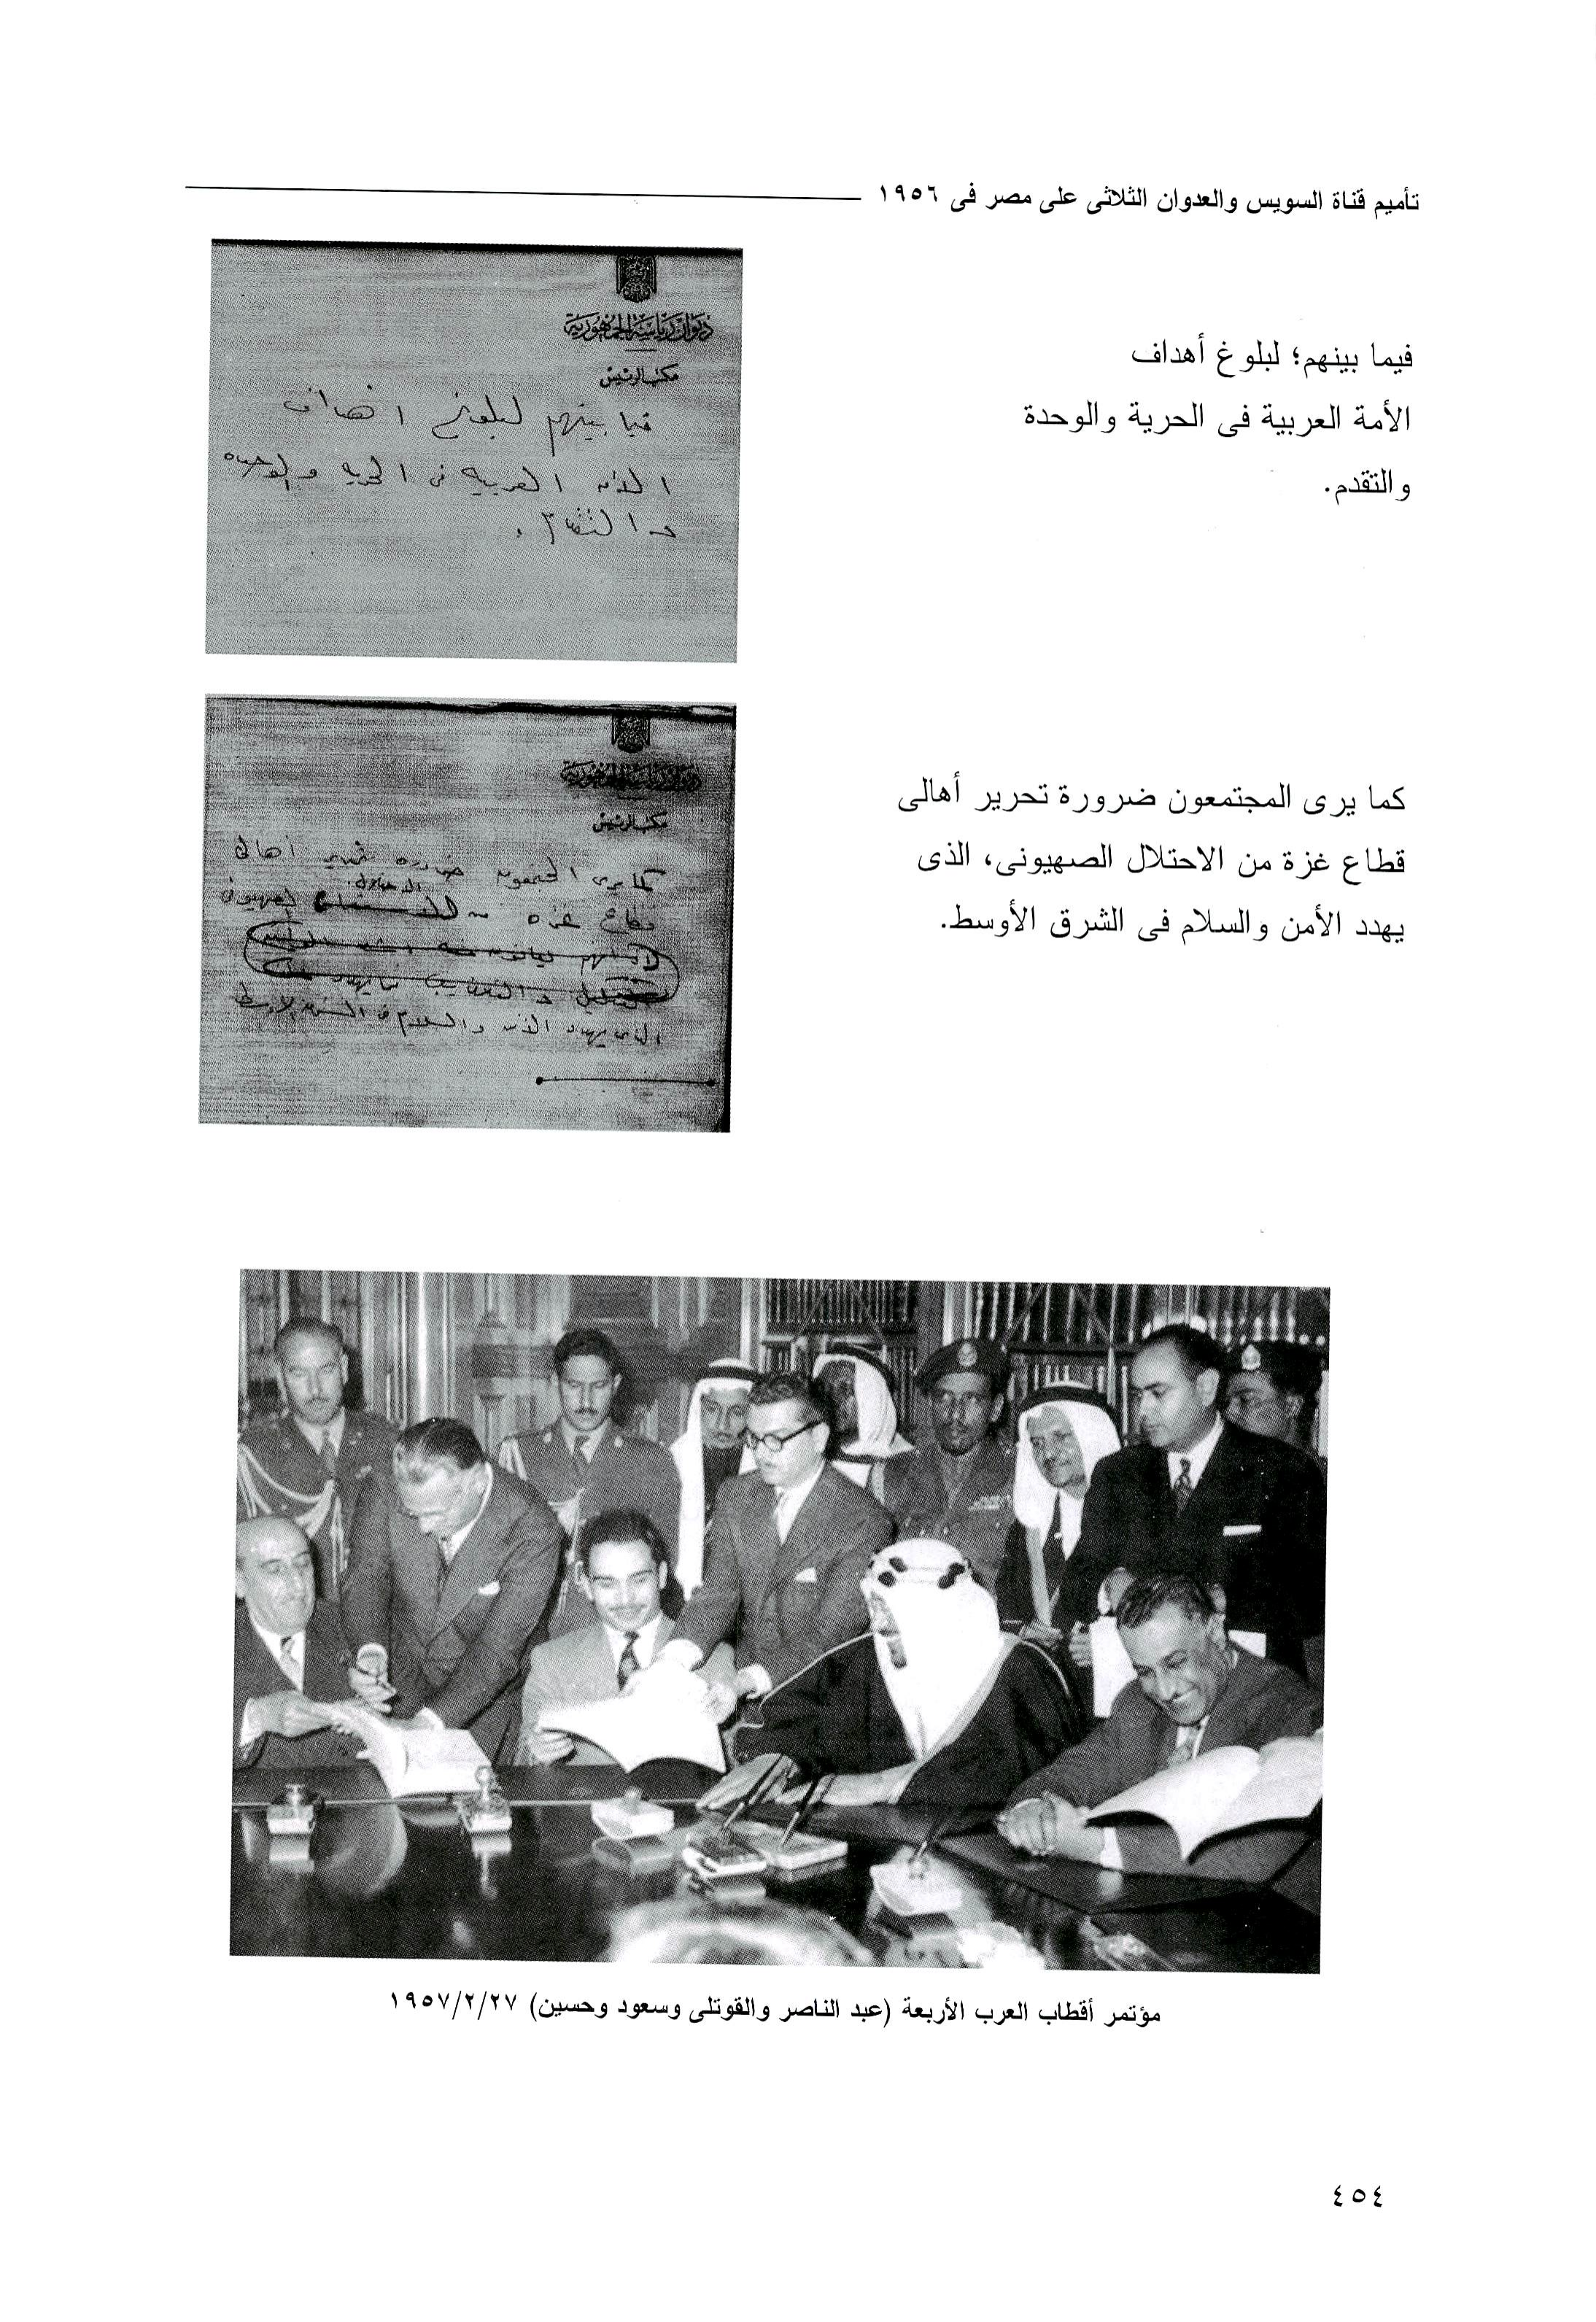 تأميم قناة السويس والعدوان الثلاثى على مصر فى ١٩٥٦
ديوان رياسة الجمهورية
مكتب الرئيس
فيما بينهم لبلوغ اهداف
الأمه العربيه فى الحريه والوحده
والتقدم .
فيما بينهم؛ لبلوغ أهداف
الأمة العربية فى الحرية والوحدة
والتقدم.
ديوان رياسة الجمهورية
مكتب الرئيس
كما يرى المجتمعون ضروره تحرير اهالى
الاحتلال
قطاع غزه من الصهيونى
الذى يهدد الأمن والسلام فى الشرق الاوسط
كما يرى المجتمعون ضرورة تحرير أهالى
قطاع غزة من الاحتلال الصهيونى، الذى
يهدد الأمن والسلام فى الشرق الأوسط.
مؤتمر أقطاب العرب الأربعة (عبد الناصر والقوتلى وسعود وحسين) ١٩٥٧/٢/٢٧
٤٥٤